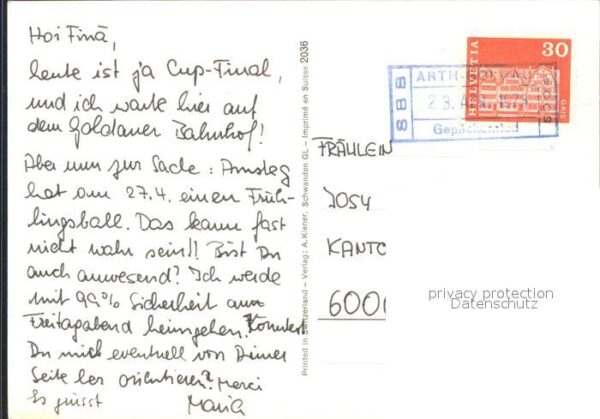 Hoi Finä,
heute ist ja Cup-Final,
und ich warte hier auf
dem Goldauer Bahnhof!
Aber nun zur Sache: Amsteg
hat am 27.4. einen Früh-
lingsball. Das kann fast
nicht wahr sein!! Bist Du
auch anwesend? Ich werde
mit 99% Sicherheit am
Freitagabend heimgehen. Könntest
Du mich eventuell von Deiner
Seite her orientieren? Merci
Es grüsst Maria
Printed in Switzerland – Verlag: A. Kiener, Schwanden GL – Imprimé en Suisse 2036
SBB
ARTH-GOLDAU
23.
Gepäck
HELVETIA
30
GAIS
FRÄULEIN
JOSY
KANTO
6000
privacy protection
Datenschutz